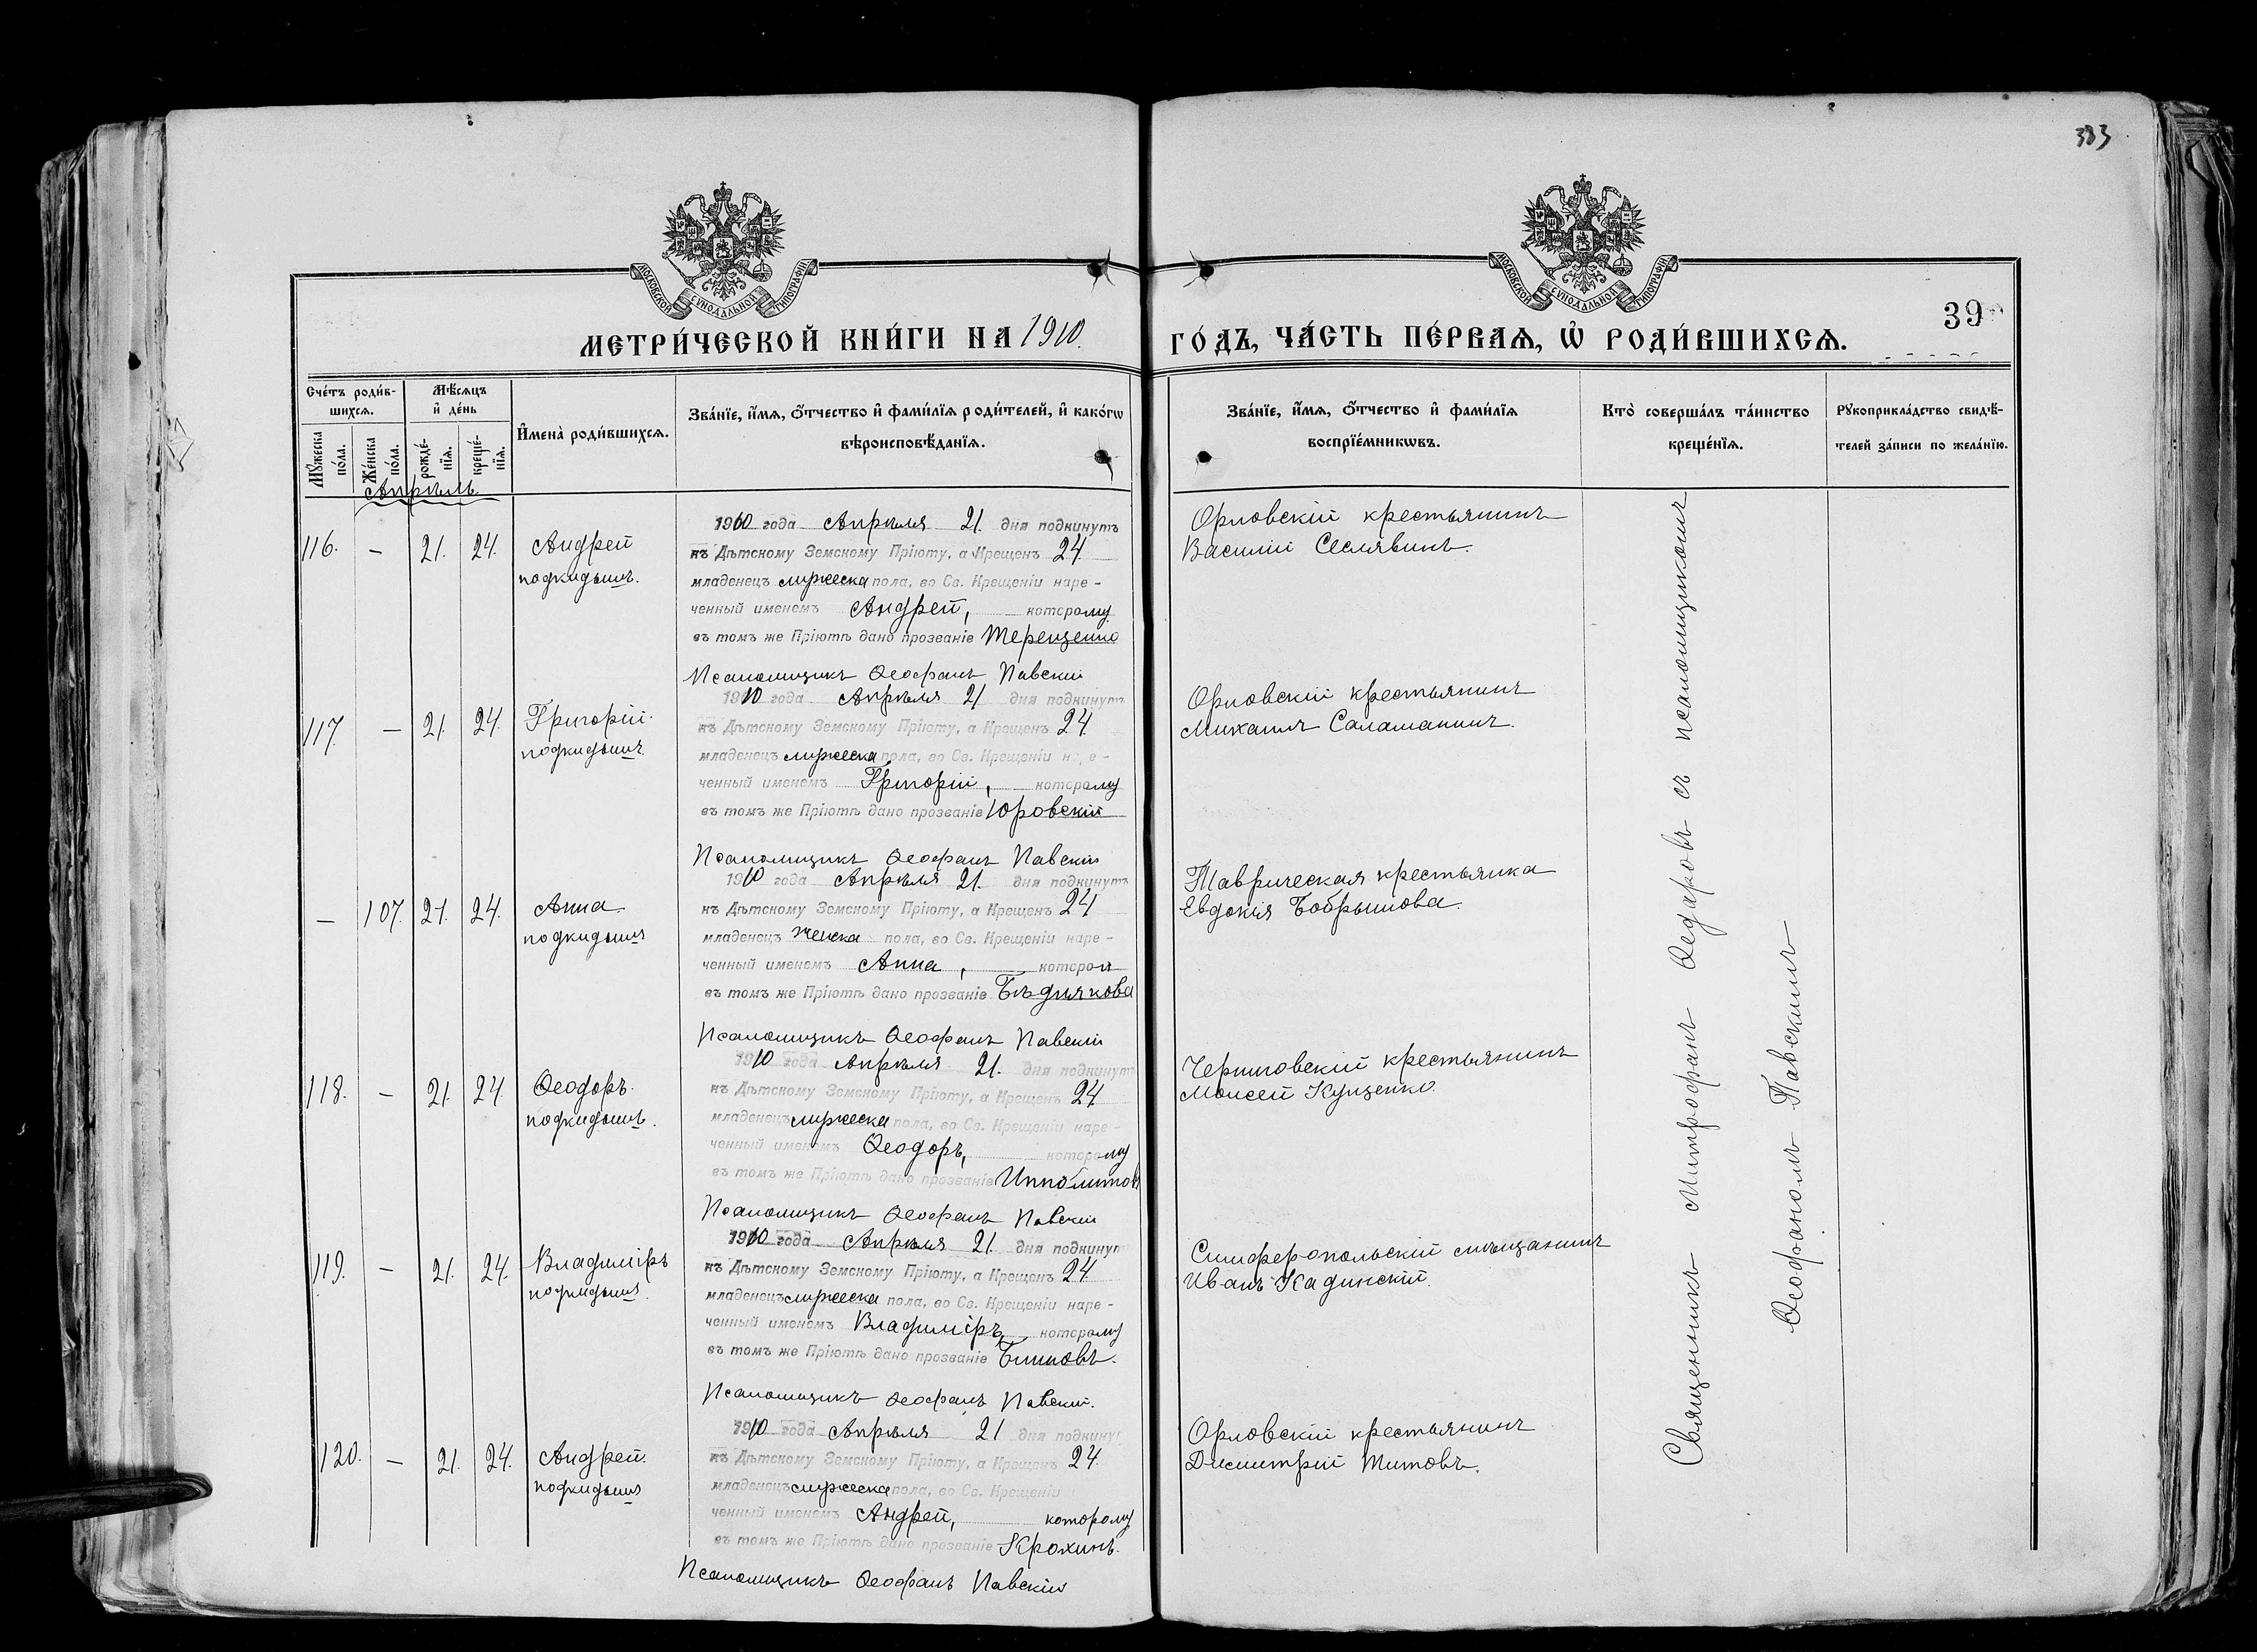 383
МОСКОВСКОЙ СѴНОДАЛЬНОЙ ТИПОГРАФІИ
МОСКОВСКОЙ СѴНОДАЛЬНОЙ ТИПОГРАФІИ
39
МЕТРИ́ЧЕСКОЙ КНИ́ГИ НА 1910. ГО́ДЪ, ЧА́СТЬ ПЕ́РВАѦ, Ѡ҆ РОДИ́ВШИХСѦ.
Сче́тъ роди́в-
шихсѧ.
Мѣ́сѧцъ
и҆ де́нь
Мꙋ́жеска
по́ла.
Же́нска
по́ла.
рожде́-
нїѧ.
креще́-
нїѧ.
И҆мена̀ роди́вшихсѧ.
Зва́нїе, и҆́мѧ, о҆́тчество и҆ фами́лїѧ роди́телей, и҆ како́гѡ
вѣроисповѣ́данїѧ.
Зва́нїе, и҆́мѧ, о҆́тчество и҆ фами́лїѧ
воспрїе́мникѡвъ.
Кто̀ соверша́лъ та́инство
креще́нїѧ.
Рꙋкоприкла́дство свидѣ́-
телей за́писи по жела́нїю.
Апрѣль
116. – 21. 24. Андрей
подкидышъ.
1910 года Апрѣля 21. дня подкинутъ
къ Дѣтскому Земскому Пріюту, а Крещенъ 24
младенецъ мужеска пола, во Св. Крещеніи наре-
ченный именемъ Андрей, которому
въ томъ же Пріютѣ дано прозваніе Терещенко
Псаломщикъ Ѳеофанъ Павскій
Орловскій крестьянинъ
Василій Сеслявинъ.
117. – 21. 24. Григорій
подкидышъ
1910 года Апрѣля 21 дня подкинутъ
къ Дѣтскому Земскому Пріюту, а Крещенъ 24
младенецъ мужеска пола, во Св. Крещеніи наре-
ченный именемъ Григорій, которому
въ томъ же Пріютѣ дано прозваніе Юровскій
Псаломщикъ Ѳеофанъ Павскій
Орловскій крестьянинъ
Михаилъ Саламатинъ.
– 107. 21. 24. Анна
подкидышъ
1910 года Апрѣля 21. дня подкинутъ
къ Дѣтскому Земскому Пріюту, а Крещенъ 24
младенецъ женска пола, во Св. Крещеніи наре-
ченный именемъ Анна, которой
въ томъ же Пріютѣ дано прозваніе Бѣднякова
Псаломщикъ Ѳеофанъ Павскій
Таврическая крестьянка
Евдокія Бобрышова.
118. – 21. 24. Ѳеодоръ.
подкидышъ.
1910 года Апрѣля 21. дня подкинутъ
къ Дѣтскому Земскому Пріюту, а Крещенъ 24
младенецъ мужеска пола, во Св. Крещеніи наре-
ченный именемъ Ѳеодоръ, которому
въ томъ же Пріютѣ дано прозваніе Ипполитовъ
Псаломщикъ Ѳеофанъ Павскій
Черниговскій крестьянинъ
Моисей Куценко.
119. – 21. 24. Владиміръ
подкидышъ.
1910 года Апрѣля 21 дня подкинут
къ Дѣтскому Земскому Пріюту, а Крещенъ 24
младенецъ мужеска пола, во Св. Крещеніи наре-
ченный именемъ Владиміръ, которому
въ томъ же Пріютѣ дано прозваніе
Псаломщикъ Ѳеофанъ Павскій.
Симферопольскій мѣщанинъ
Иванъ Кадинскій.
120. – 21. 24. Андрей.
подкидышъ
1910 года Апрѣля 21 дня подкину
къ Дѣтскому Земскому Пріюту, а Крещенъ 24
младенецъ мужеска пола, во Св. Крещеніи
ченный именемъ Андрей, которому
въ томъ же Пріютѣ дано прозваніе Крохинъ.
Псаломщикъ Ѳеофанъ Павскій
Орловскій крестьянинъ
Димитрій Титовъ.
Священникъ Митрофанъ Ѳедоровъ съ псаломщикомъ
Ѳеофаномъ Павскимъ